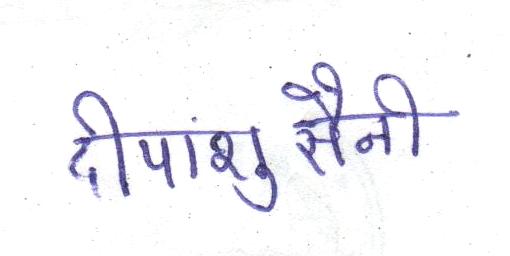 दीपांशु सैनी